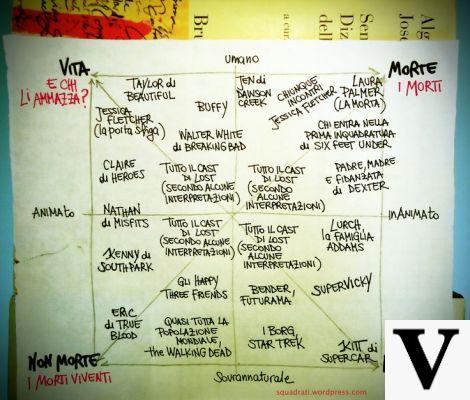 Bru
a cura
Diz
de
Alg
Jose
umano
VITA
MORTE
E CHI
LI AMMAZZA?
I MORTI
TAYLOR di
BEAUTIFUL
TEN di
DAWSON
CREEK
CHIUNQUE
INCONTRI
JESSICA FLETCHER
LAURA
PALMER
(LA MORTA)
JESSICA
FLETCHER
(la porta sfiga)
BUFFY
WALTER WHITE
di BREAKING BAD
CHI ENTRA NELLA
PRIMA INQUADRATURA
di SIX FEET UNDER
CLAIRE
di HEROES
TUTTO IL CAST
DI LOST
(SECONDO ALCUNE
INTERPRETAZIONI)
TUTTO IL CAST
DI LOST
(SECONDO ALCUNE
INTERPRETAZIONI)
PADRE, MADRE
E FIDANZATA
di DEXTER
ANIMATO
INANIMATO
NATHAN
di MISFITS
TUTTO IL CAST
DI LOST
(SECONDO ALCUNE
INTERPRETAZIONI)
TUTTO IL CAST
DI LOST
(SECONDO ALCUNE
INTERPRETAZIONI)
LURCH,
la FAMIGLIA
ADDAMS
KENNY di
SOUTH PARK
GLI HAPPY
THREE FRIENDS
BENDER,
FUTURAMA
SUPERVICKY
ERIC
di TRUE
BLOOD
QUASI TUTTA LA
POPOLAZIONE
MONDIALE,
the WALKING DEAD
I BORG,
STAR TREK
KITT di
SUPERCAR
NON MORTE
I MORTI VIVENTI
Sovrannaturale
squadrati.wordpress.com
V